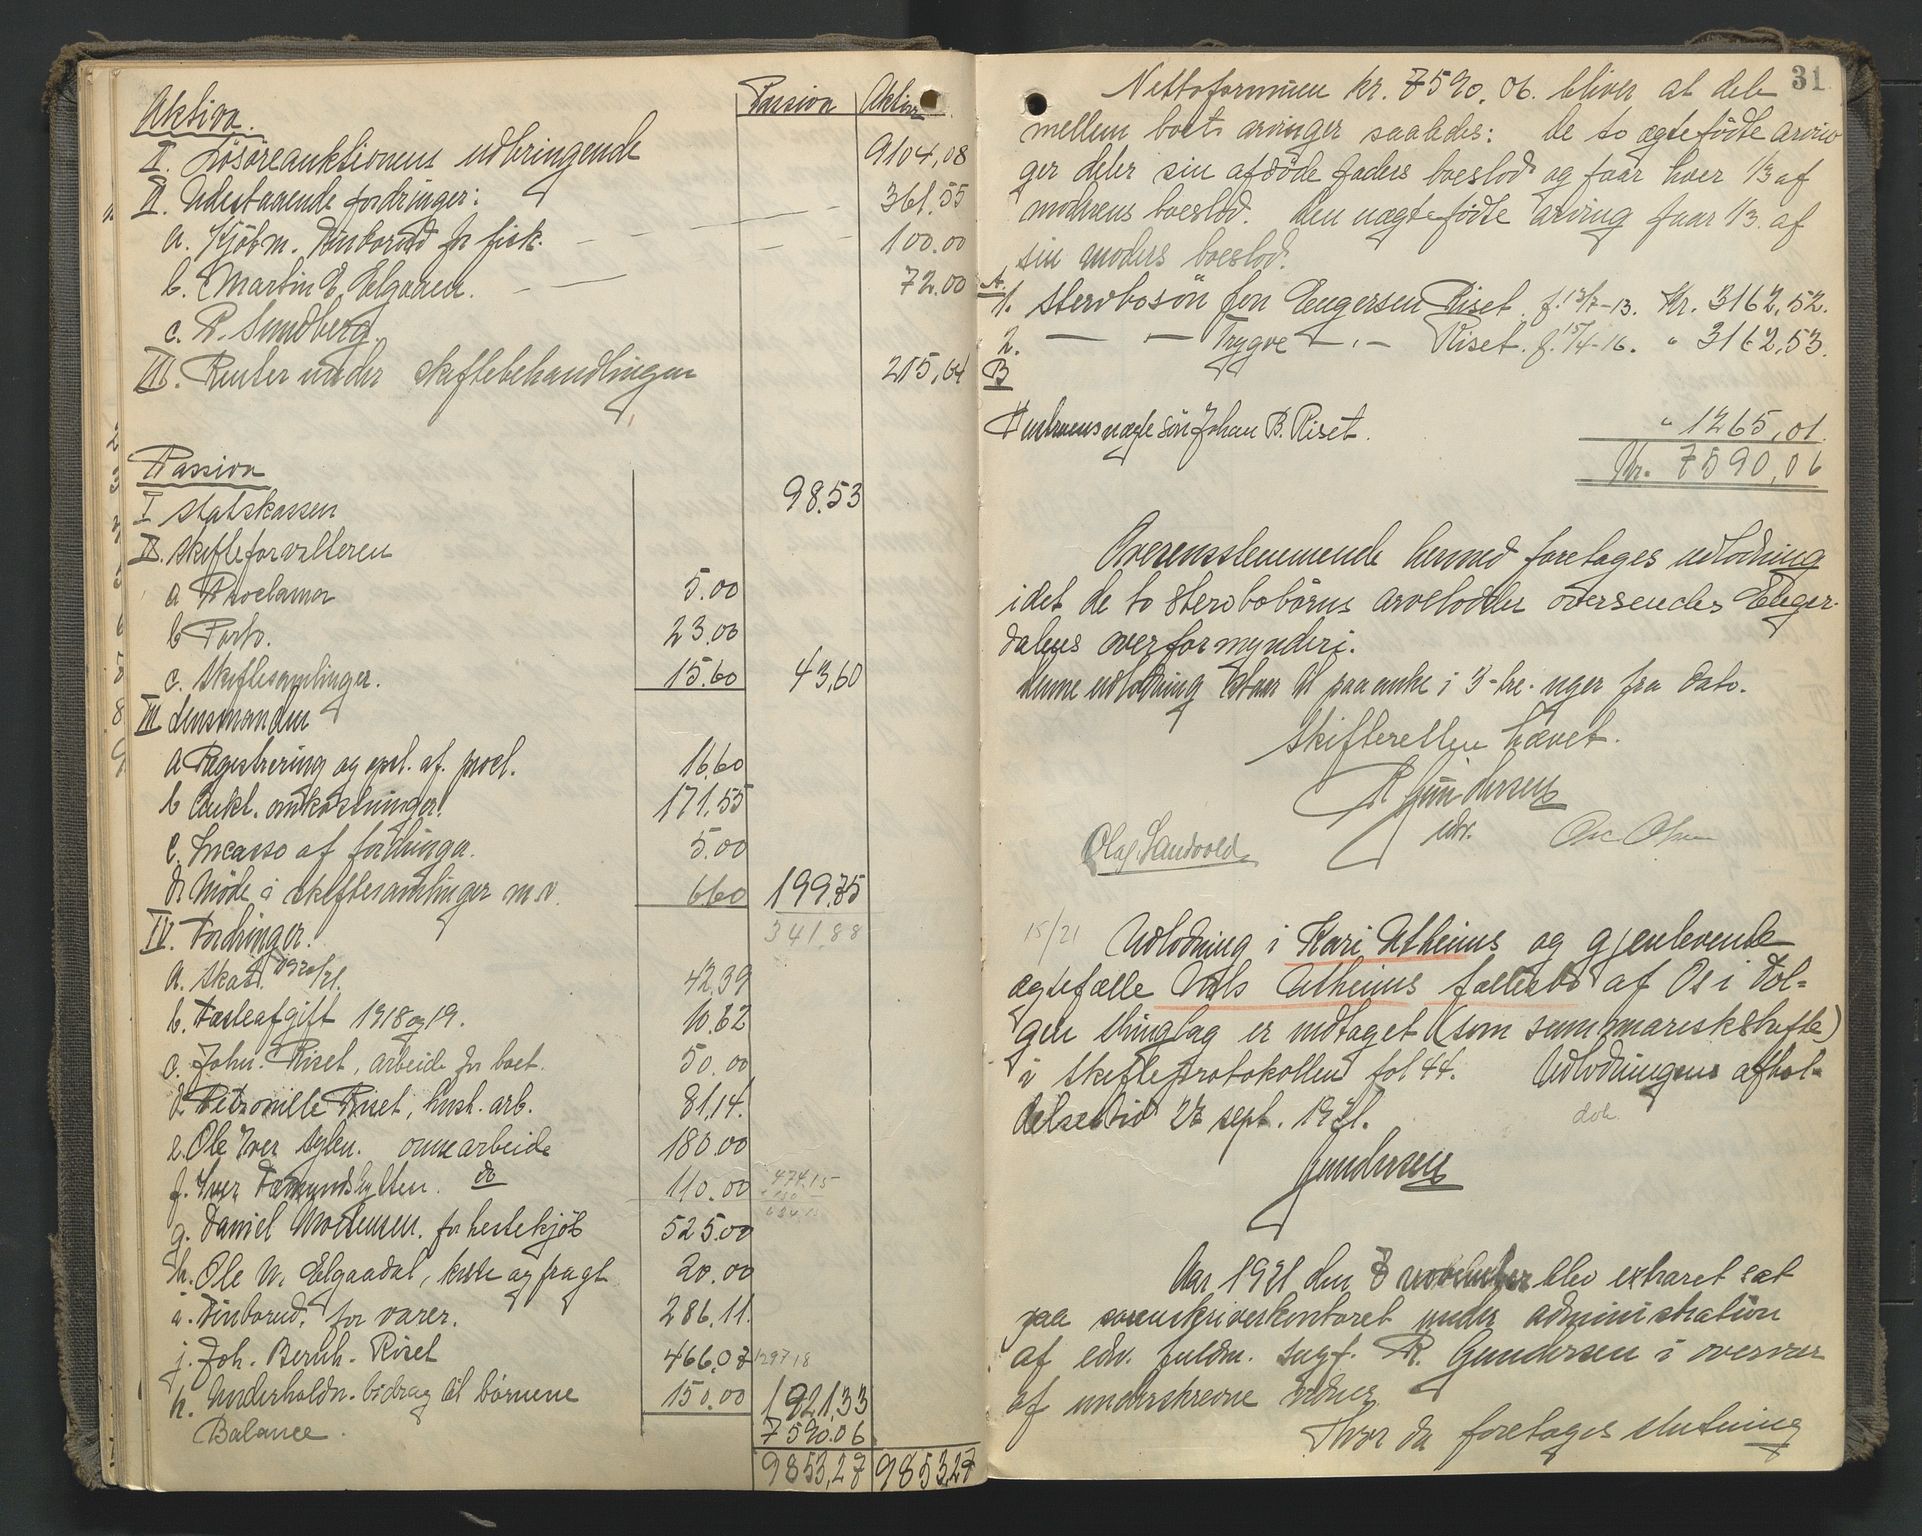 Aktiva. Passiva Aktiva.
I. Lösöreauktionens udbringende 9104,08
II. Udestaaende fordringer: 361.55
a. Kjöbm. Finborud for fisk. — — — 100.00
b. Martin E. Elgaaen. — — 72.00
c. P. Sundberg.
III. Renter under skiftebehandlingen 215,64
Passiva
I Statskassen 98.53
II. Skifteforvalteren
a Proclama 5.00
b Porto. 23.00
c. Skiftesamlinger. 15.60 43,60
III Lensmanden
a Registrering og opsl. af procl. 16.60
b Aukt. omkostninger. 171.55
c. Incasso af fordringer. 5.00
d. Möde i skiftesamlinger m.v. 6.60 199.75
341.88
IV. Fordringer.
a. Skat 42.39
b. Tasteafgift 1918 og 19. 10.62
c. John. Riset, arbeide for boet. 50.00
d. Petronille Riset, hush. arb. 81.14.
e. Ole Iver Sylen. onnearbeide 180.00
f. Iver Fæmundshytten. do 110.00 474.15
g. Daniel Mortensen. for hestekjöb 525.00
h. Ole N. Elgaadal, kiste og fragt 20.00
i. Finborud, for varer. 286.11.
j. Joh. Bernh. Riset 466.07 1297 18
k. Underholdn. bidrag til börnene 150.00 1921,33
Balance. 7590.06
9853,27 9853,27
31
Nettoformuen kr. 7590,06. bliver at dele
mellem boets arvinger saaledes: De to ægtefödte arvin
ger deler sin afdöde faders boeslod og faar hver 1/3 af
moderens boeslod. Den uægtefödte arving faar 1/3 af
sin moders boeslod.
A.
1. Stervbosön Jon Engersen Riset. f. 13/7-13. Kr. 3162,52.
2. — — Trygve —„— Riset. f. 15/4-16. " 3162,53.
B
Hustruens uægte sön Johan B. Riset. " 1265,01.
Kr. 7590,06
Overensstemmende hermed foretages udlodning
idet de to stervbobörns arvelodder oversendes Enger-
dalens overformynderi.
Denne udlodning staar til paaanke i 3-tre. uger fra dato.
Skifteretten hævet.
R Gundersen
edv.
Olaf Sandvold Osc Olsen
15/21 Udlodning i Kari Utheims og gjenlevende
ægtefælle Nils Utheims fællesbo af Os i Tol-
gen thinglag er indtaget (som summariskskifte)
i skifteprotokollen fol 44. Udlodningens afhol-
delsestid 27 sept. 1921.
dok
Gundersen
Aar 1921 den 8 november blev extraret sat
paa sorenskriverkontoret under administration
af edv. fuldm. sagf. R. Gundersen i overvær
af underskrevne vidner
Hvor da foretages slutning